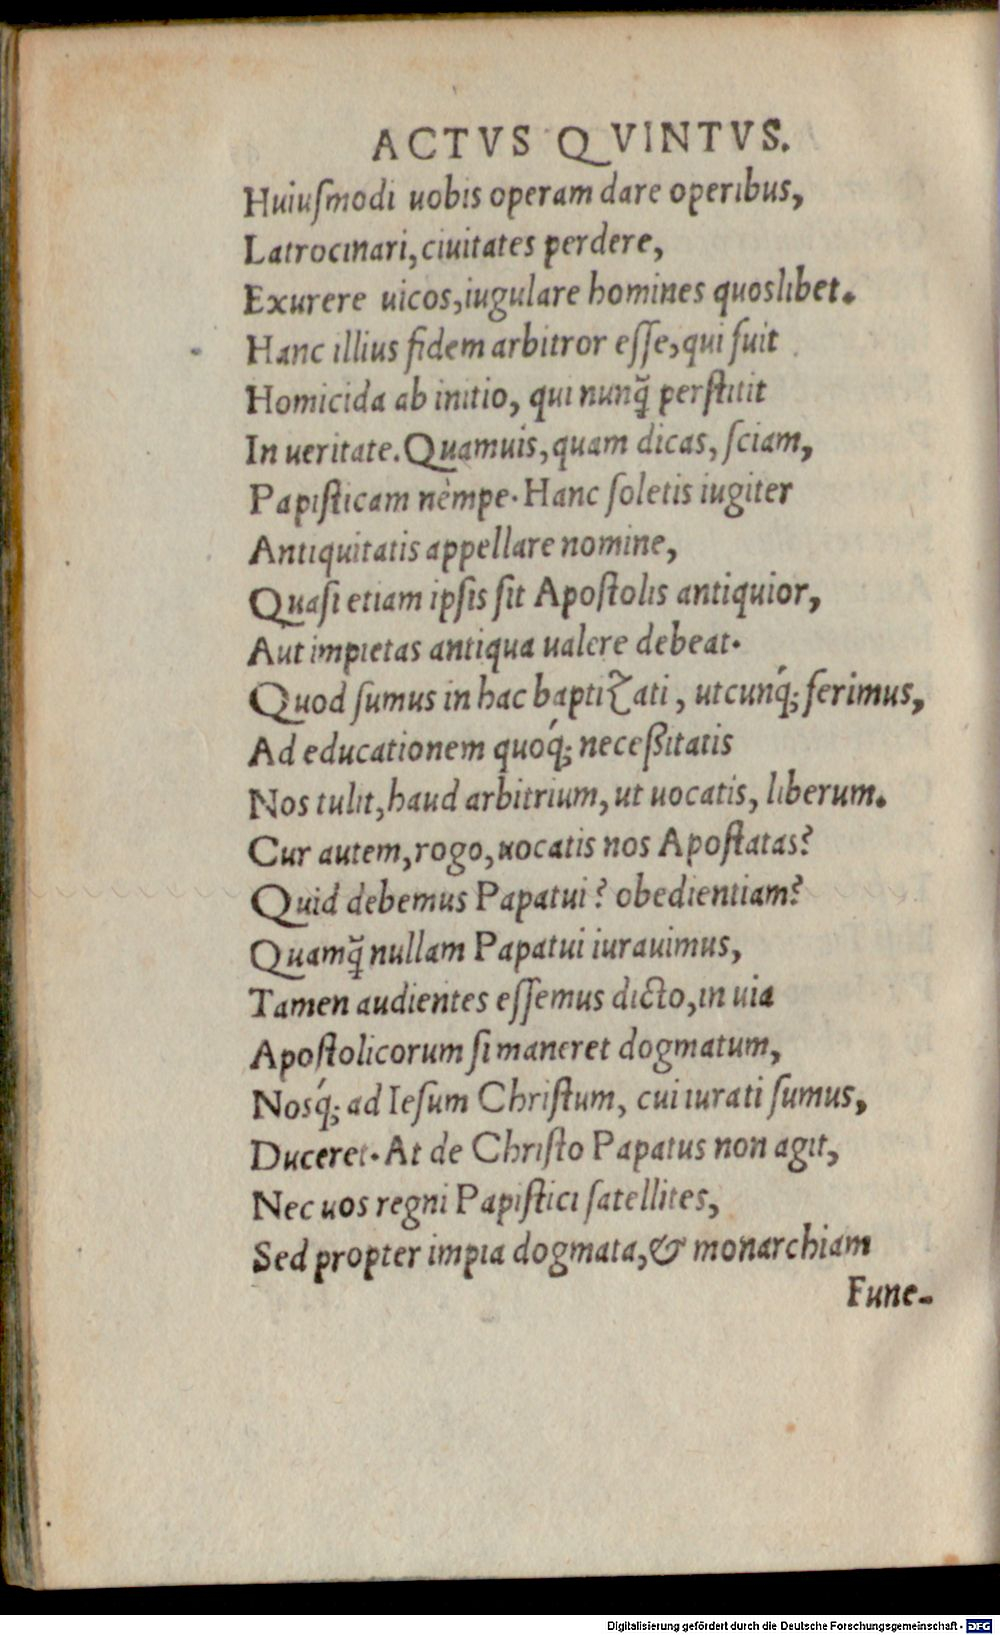 ACTVS QVINTVS.
Huiuſmodi uobis operam dare operibus,
Latrocinari, ciuitates perdere,
Exurere uicos, iugulare homines quoslibet.
Hanc illius fidem arbitror eſſe, qui fuit
Homicida ab initio, qui nunq̃ perſtitit
In ueritate. Quamuis, quam dicas, ſciam,
Papiſticam nèmpe. Hanc ſoletis iugiter
Antiquitatis appellare nomine,
Quaſi etiam ipſis ſit Apoſtolis antiquior,
Aut impietas antiqua ualere debeat.
Quod ſumus in hac baptizati, utcunq́; ferimus,
Ad educationem quoq́; neceßitatis
Nos tulit, haud arbitrium, ut uocatis, liberum.
Cur autem, rogo, uocatis nos Apoſtatas?
Quid debemus Papatui? obedientiam?
Quamq̃ nullam Papatui iurauimus,
Tamen audientes eſſemus dicto, in uia
Apoſtolicorum ſi maneret dogmatum,
Nosq́; ad Ieſum Chriſtum, cui iurati ſumus,
Duceret. At de Chriſto Papatus non agit,
Nec uos regni Papiſtici ſatellites,
Sed propter impia dogmata, & monarchiam
Fune-
Digitalisierung gefördert durch die Deutsche Forschungsgemeinschaft - DFG